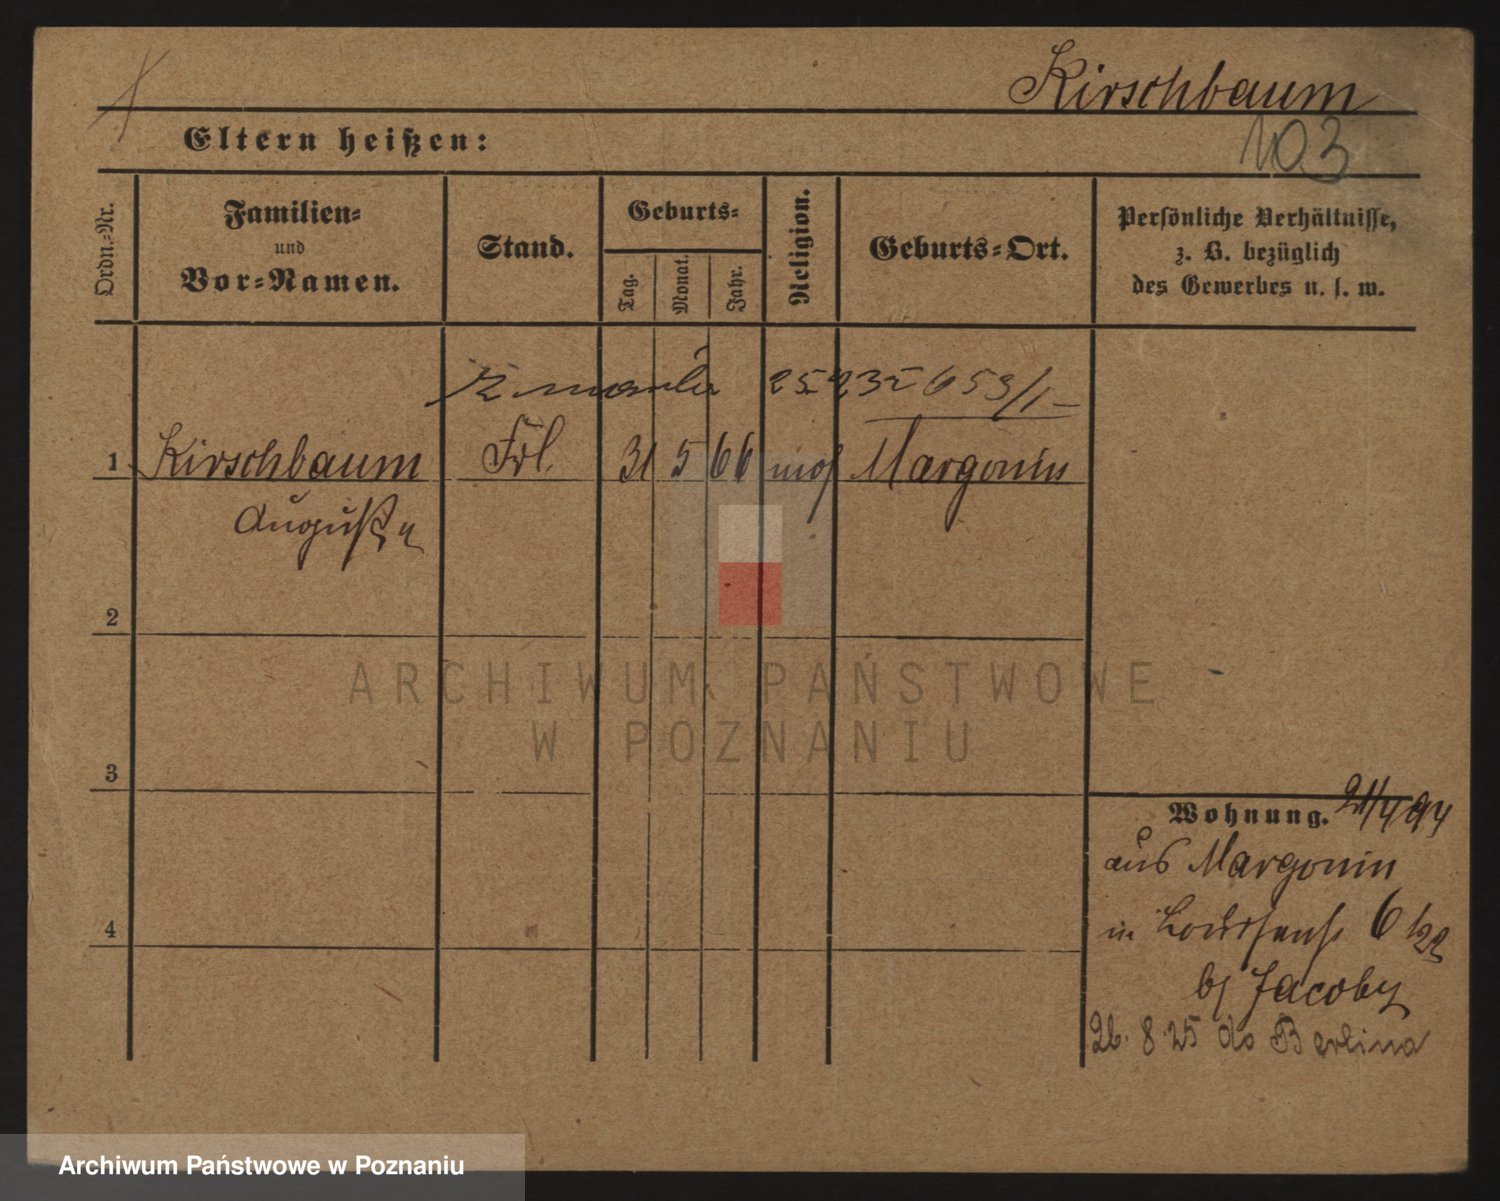 Kirschbaum
103
Eltern heißen:
Ordn.-Nr.
Familien-
und
Vor-Namen.
Stand.
Geburts-
Tag.
Monat.
Jahr.
Religion.
Geburts-Ort.
Persönliche Verhältnisse,
z. B. bezüglich
des Gewerbes u. s. w.
1 Kirschbaum Frl. 31 5 66 mos Margonin
Auguste
2
3
4
Wohnung. 21/4 94
aus Margonin
in 6
bj Jacoby
26. 8 25 do Berlina
ARCHIWUM PAŃSTWOWE
W POZNANIU
Archiwum Państwowe w Poznaniu